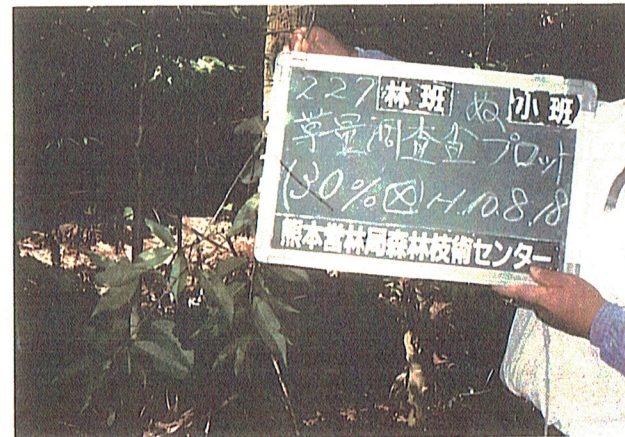 227林班 ぬ小班
草量調査プロット
(30%区) H.10.8.18
熊本営林局森林技術センター